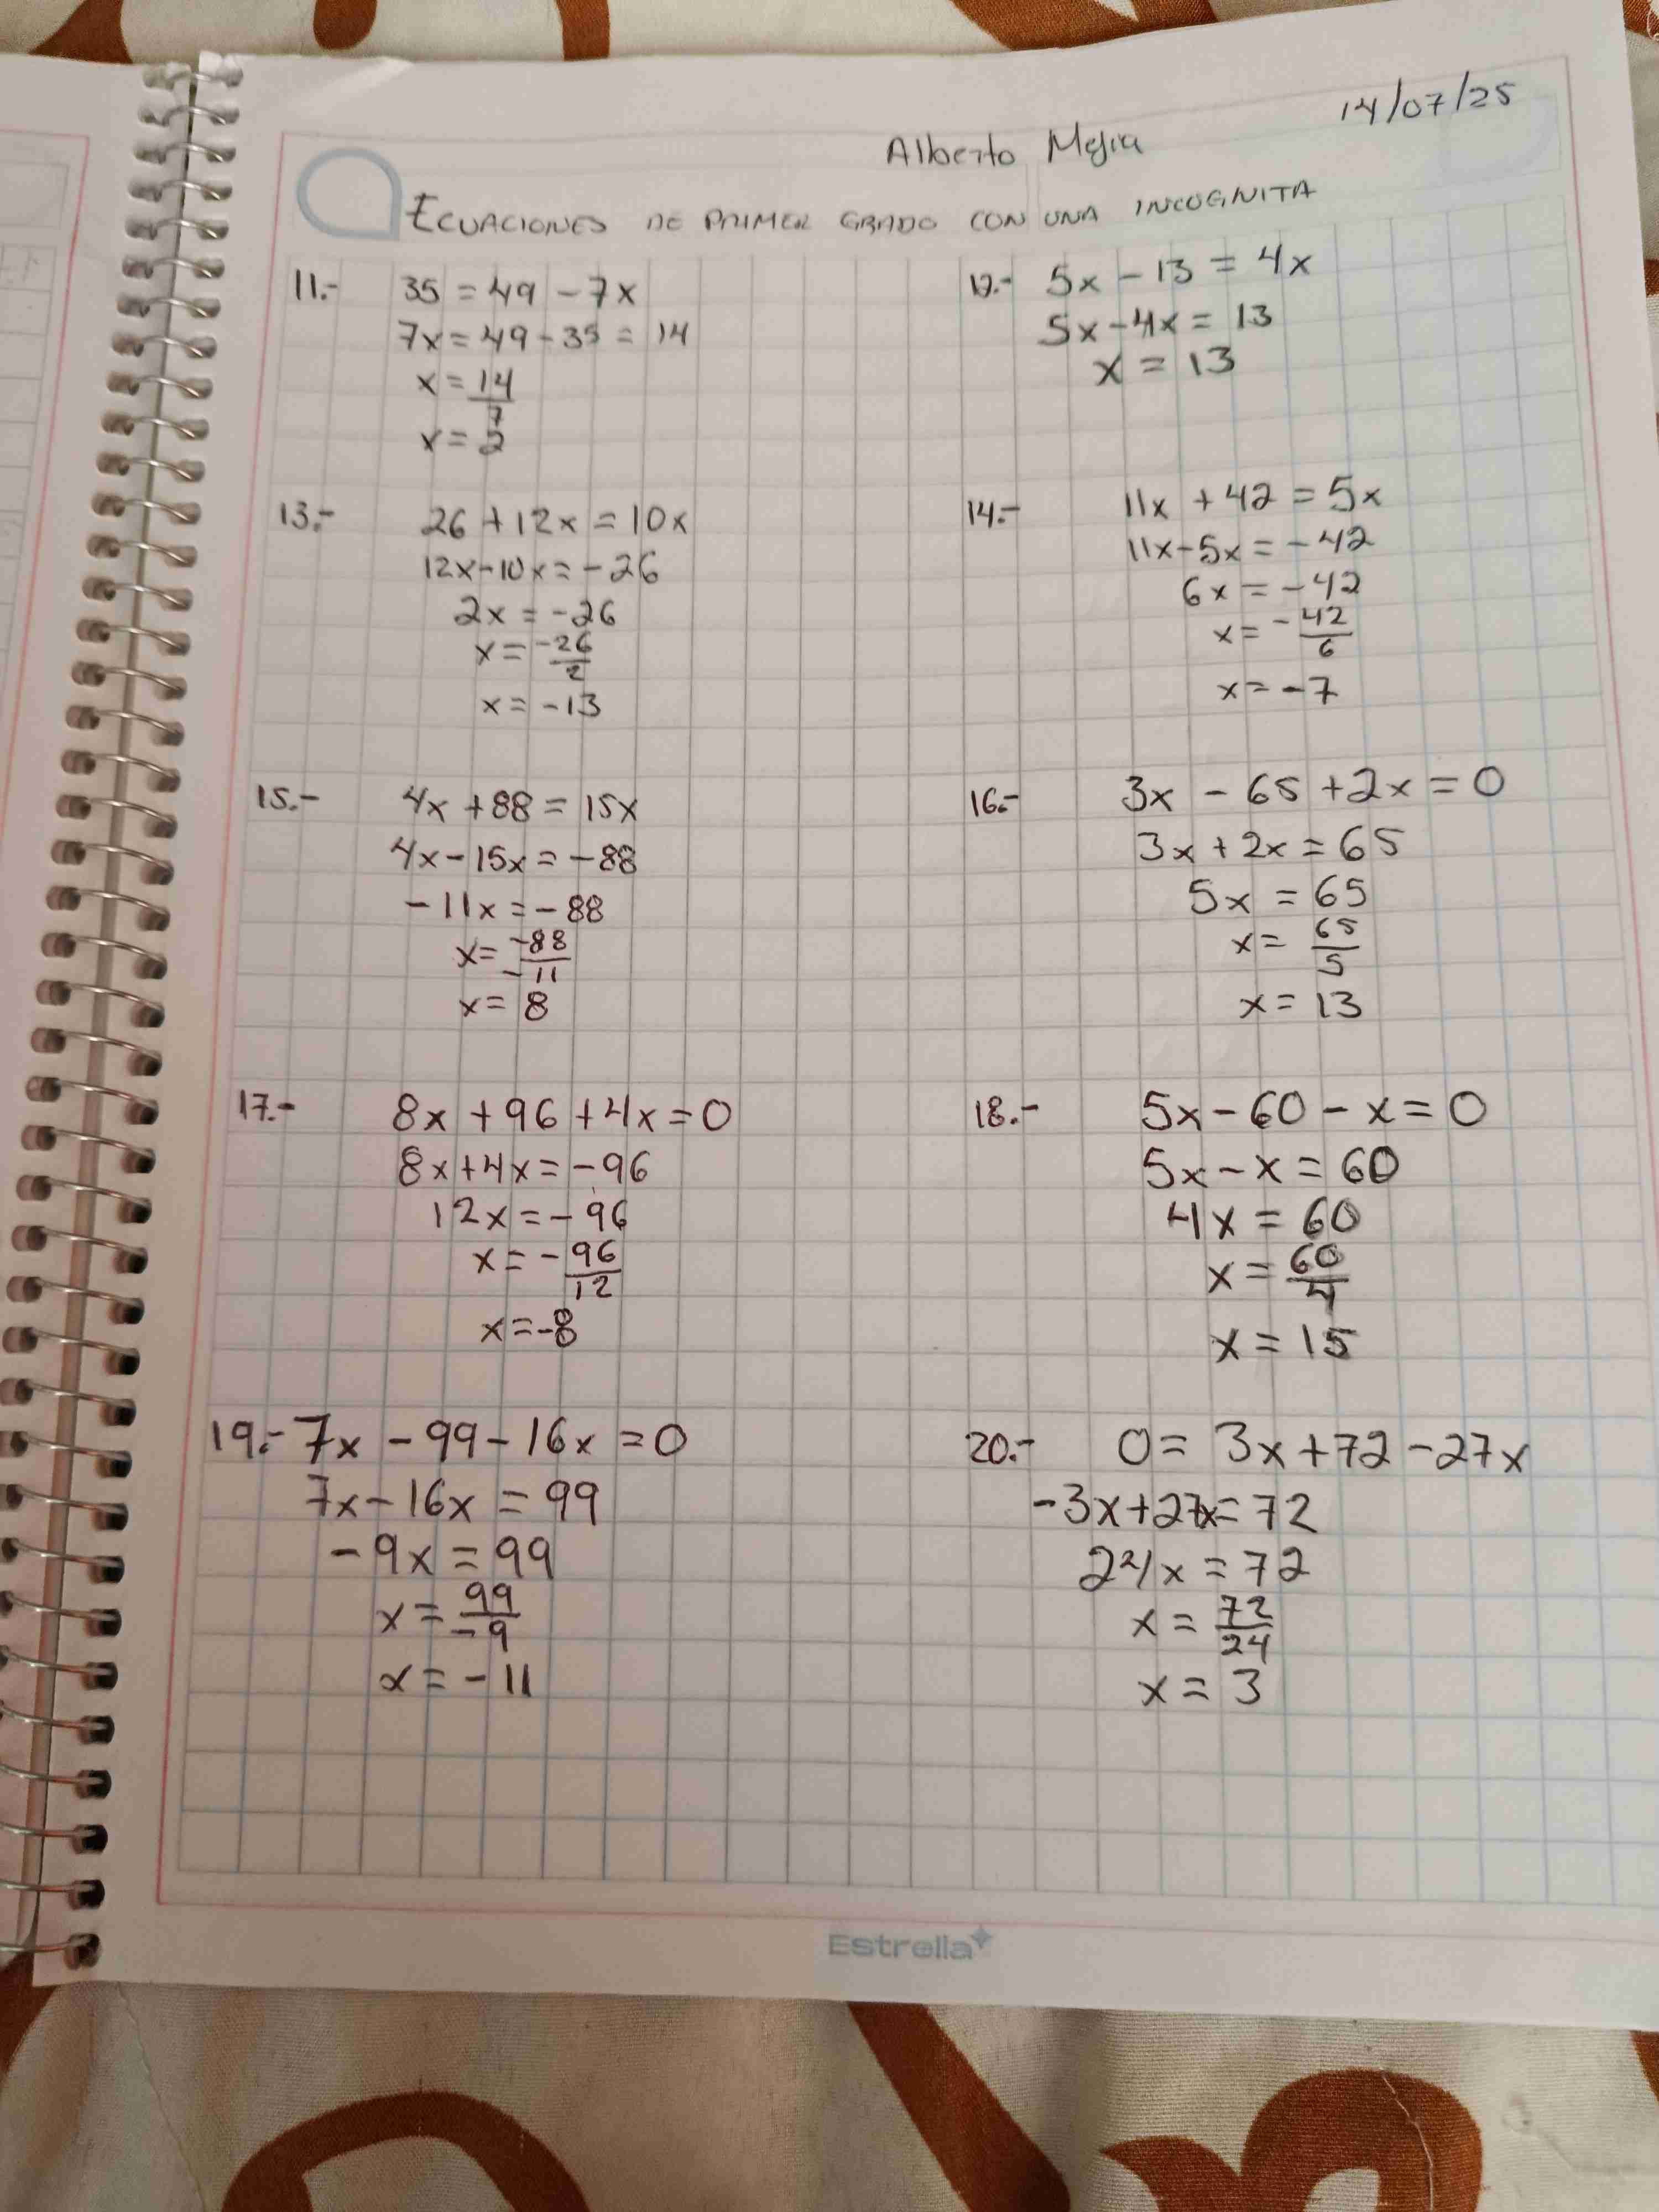 14/07/25
Alberto Mejia
ECUACIONES DE PRIMER GRADO CON UNA INCOGNITA
11.- 35 = 49 - 7x
7x = 49 - 35 = 14
x = 14/7
x = 2
12.- 5x - 13 = 4x
5x - 4x = 13
x = 13
13.- 26 + 12x = 10x
12x - 10x = -26
2x = -26
x = -26/2
x = -13
14.- 11x + 42 = 5x
11x - 5x = -42
6x = -42
x = -42/6
x = -7
15.- 4x + 88 = 15x
4x - 15x = -88
-11x = -88
x = -88/-11
x = 8
16.- 3x - 65 + 2x = 0
3x + 2x = 65
5x = 65
x = 65/5
x = 13
17.- 8x + 96 + 4x = 0
8x + 4x = -96
12x = -96
x = -96/12
x = -8
18.- 5x - 60 - x = 0
5x - x = 60
4x = 60
x = 60/4
x = 15
19.- 7x - 99 - 16x = 0
7x - 16x = 99
-9x = 99
x = 99/-9
x = -11
20.- 0 = 3x + 72 - 27x
-3x + 27x = 72
24x = 72
x = 72/24
x = 3
Estrella